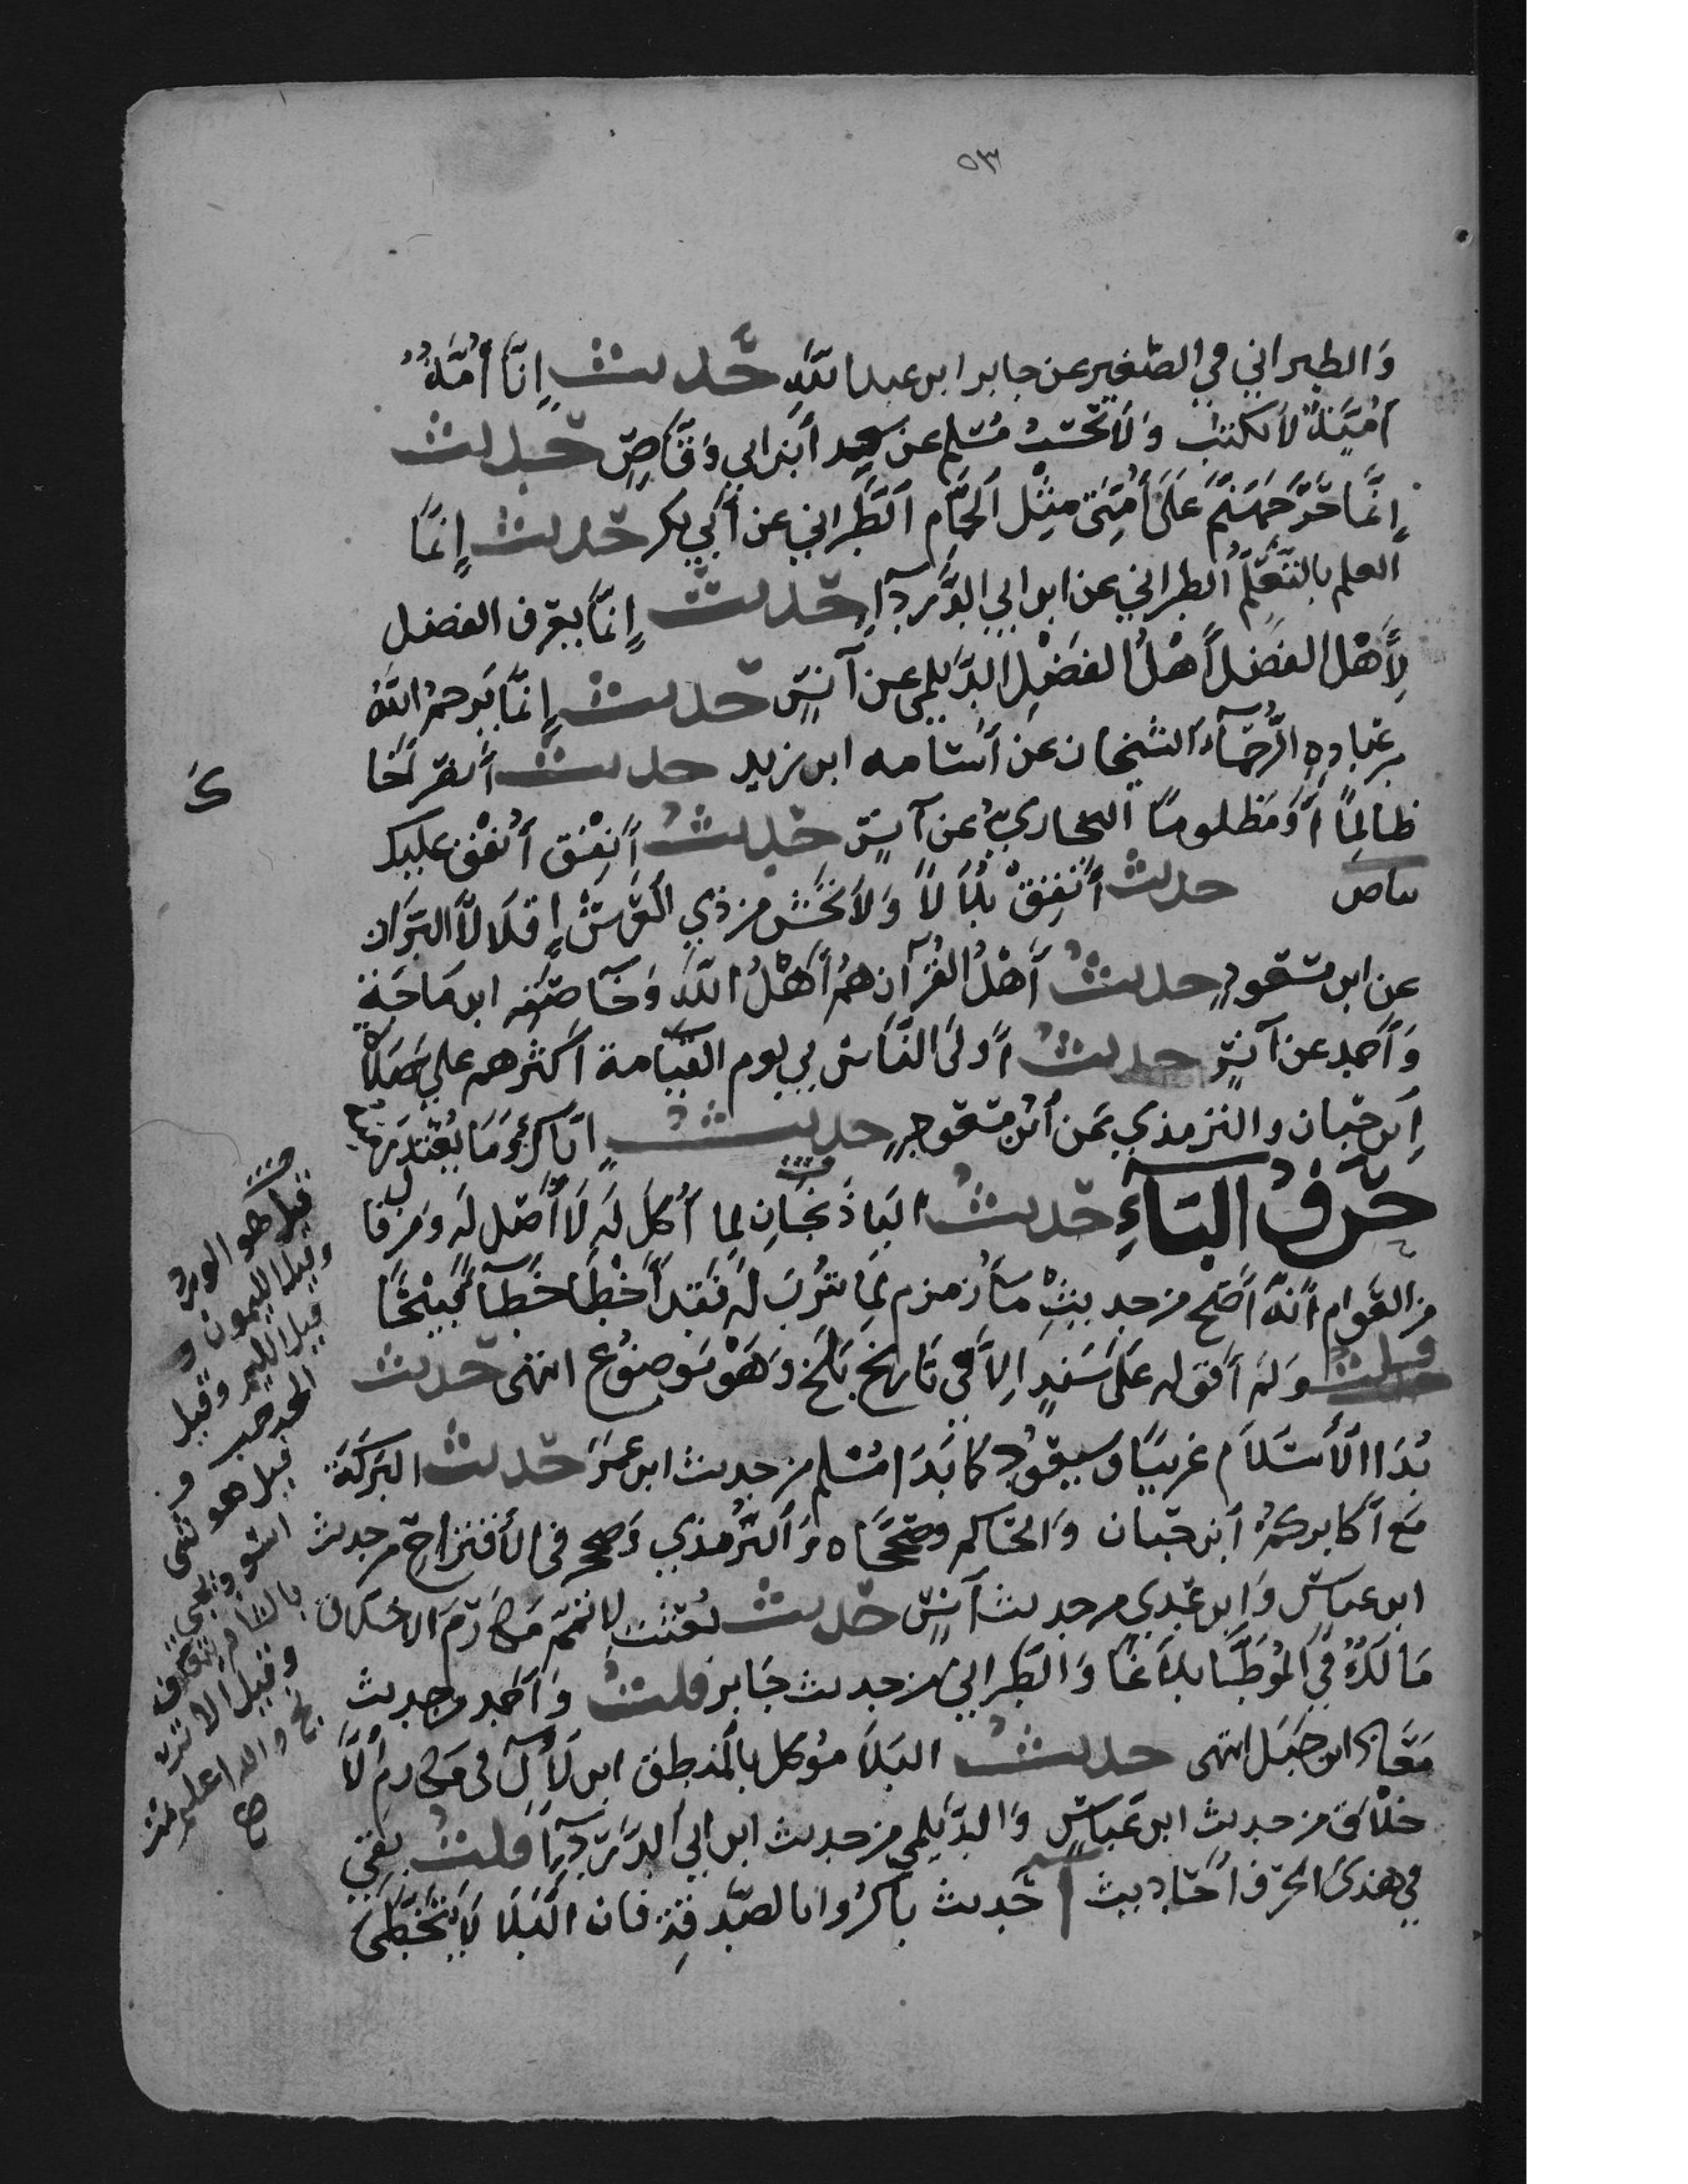 ٥٣
وَالطبراني في الصَّغير عن جابر ابن عبد اللَّهِ حَدیث إِنَّا أُمَّةٌ
أُمِّيَّةٌ لَا نكتبُ وَلَا نحْسبُ مُسْلم عن سعِيد أَبْن ابي وَقَّاصٍ حَديث
إِنَّمَا حَرُّ جَهَنَّمَ عَلَى أُمَّتَي مِثْل اَلحَمَّامِ اَلطَّبَراني عن أَبي بكر حَديث إِنَّمَا
العلم بالتَّعَلُّمِ الطبراني عن ابن ابي الدَّرْدَآءِ حَديث إِنَّمَا يعرف الفضل
لِأَهْل الفضل أَهْلُ الفَضْلِ الدَّيْلمي عن أَنسٍ حَديث إِنَّمَا يَرحمُ اللَّهُ
مِنْ عِبَادِهِ الرُّحَمَآءَ الشيخان عن أُسَامه ابن زيد حديث أنصر أخَا
ظالِمًا أَوْ مَظلومًا البخاريُّ عن أَنسٍ حَديث أَنْفِقْ أُنْفِقْ عليك
بياض حديث أَنْفِقْ بِلَالًا وَلَا تَخْشَ من ذي الْعَرْشِ إِقْلَالًا البَزار
عن ابن مسعودٍ حديث أَهْلُ القُرْآن هُمْ أَهْلُ اللَّهِ وَخَآصَّتُه ابن مَاجَةٍ
وَأَحمد عن أَنسٍ حديث أَوْلَى النَّاسِ بي يوم القيَامة أكثرهم علي صَلاةً
اِبن حبان والترمذي عَن اُبْن مَسْعودٍ حديث إِيَّاكَ وَمَا يُعْتَذرُ مِنْهُ
حَرْفُ البَآءِ حَديث البَاذَنْجَانِ لِمَا أُكلَ لَهُ لَا أَصْل لَه وَمن قا
من العَوام أَنَّهُ أَصَح من حديثِ مَآءُ زمزم لِمَا شُرِبَ لَه فَقد أَخْطَأَ خَطَأً قَبِيْحًا
قلت وَلَم أقف له عَلَى سَنَدٍ اِلَّا في تَاريخِ بَلْخ وَهَوْ مَوضُوع انتهى حَديث
بَدَا الأِسْلَام غَريبًا وَسيَعُوْد كَمَا بَدَا مُسْلم من حديث ابن عمَرَ حَديث البَرَكَة
مَع أَكابركُمُ أبْن حبَّان وَالحَاكم وصَححَاه وَالتِّرْمذي وَصححه في الأقتراح من حديث
ابن عباسٍ وَابن عَدِي من حديث أَنسٍ حَديث بُعثْتُ لاتمّمَ مَكَارِمَ الاخلاق
مَالكُ فِي المُوَطَّأ بلَاغًا وَالطَّبراني من حديث جَابر قلت وَأَحْمد من حديث
مَعَاذ ابن جَبَل انتهى حديث البَلَا مُوَكل بِالمَنطِق ابن لآلٍ في مَكارم الَا
خلَاق من حديث ابن عَبَاسٍ وَالديْلمي من حديث ابن ابي الدَّرْدَآءِ قلت بَقِي
في هذى الحَرف أَحَاديث حَديث بَاكرُوا بالصَّدقةِ فان الَبلَا لَا يتخَطَّى
قيل هو الورد
وقيل الليمون و
قيل هو
اشو
وقيل الاترج
والله اعلم